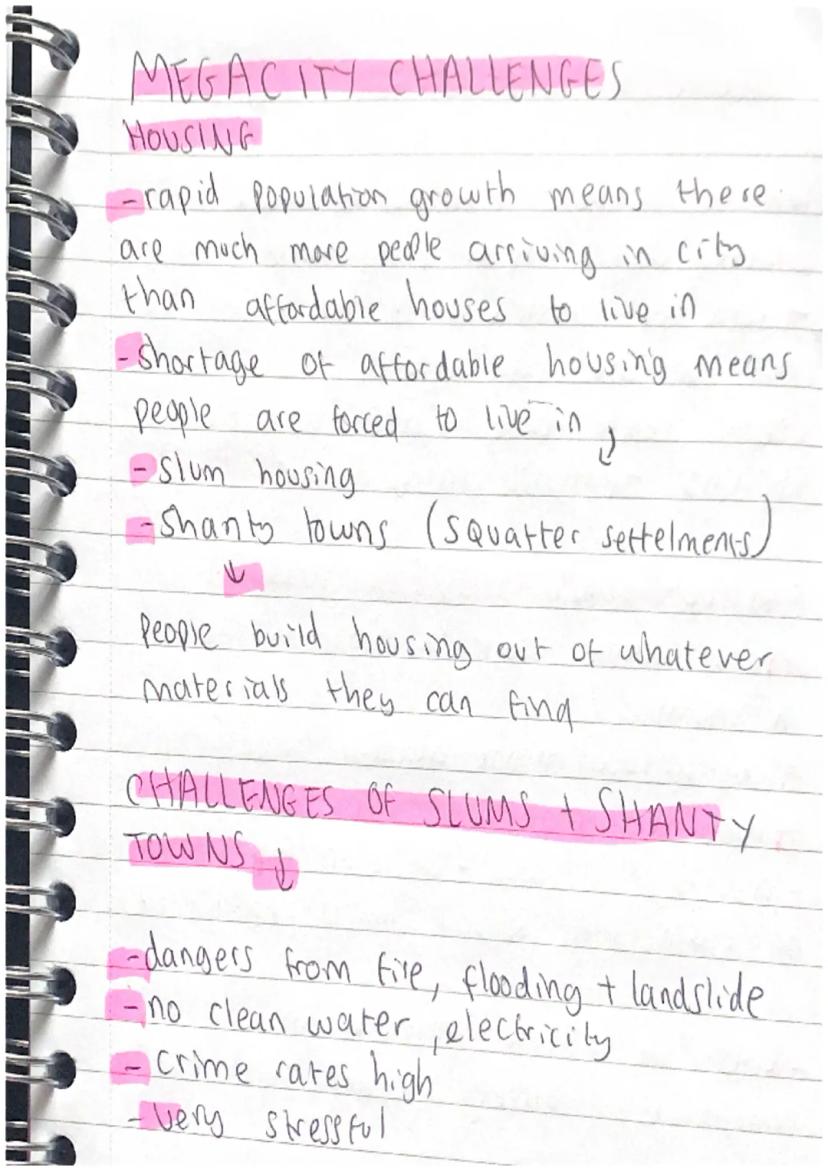 MEGACITY CHALLENGES
HOUSING
-rapid population growth means there
are much more people arriving in city
than affordable houses to live in
-shortage of affordable housing means
people are forced to live in ↓
-slum housing
-shanty towns (squatter settelments)
↓
people build housing out of whatever
materials they can find
CHALLENGES OF SLUMS + SHANTY
TOWNS ↓
-dangers from fire, flooding + landslide
-no clean water, electricity
-crime rates high
-very stressful